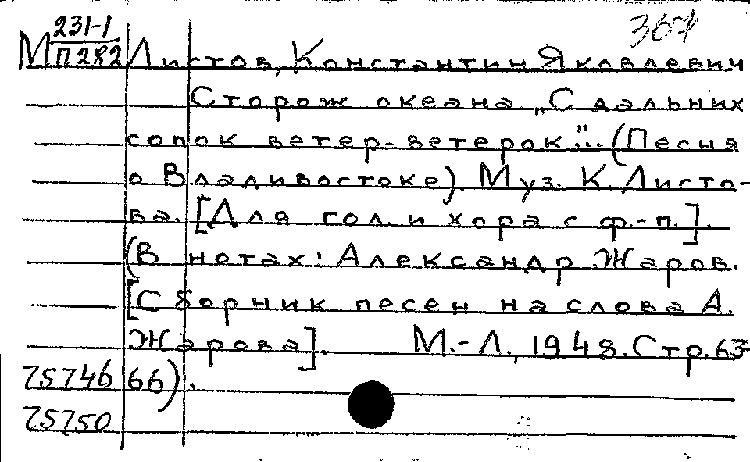 М 231-1
П 282 Листов, Константин Яковлевич
Сторож океана „С дальних
сопок ветер-ветерок"... (Песня
о Владивостоке). Муз. К. Листо-
ва. [Для гол. и хора с ф.-п.].
(В нотах: Александр Жаров.
[Сборник песен на слова А.
Жарова]. М.-Л., 1948. Стр. 63-
75746 66).
75750